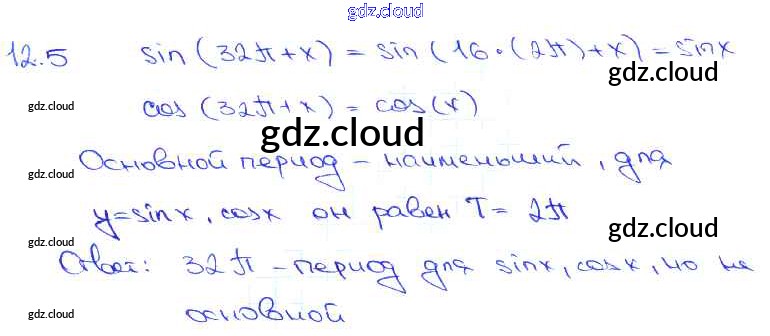 gdz.cloud
12.5 sin(32π+x) = sin(16·(2π)+x) = sinx
gdz.cloud
gdz.cloud
cos(32π+x) = cos(x)
gdz.cloud
Основной период – наименьший, для
gdz.cloud
y=sinx, cosx он равен T = 2π
gdz.cloud
gdz.cloud
Ответ: 32π – период для sinx, cosx, но не
основной
gdz.cloud